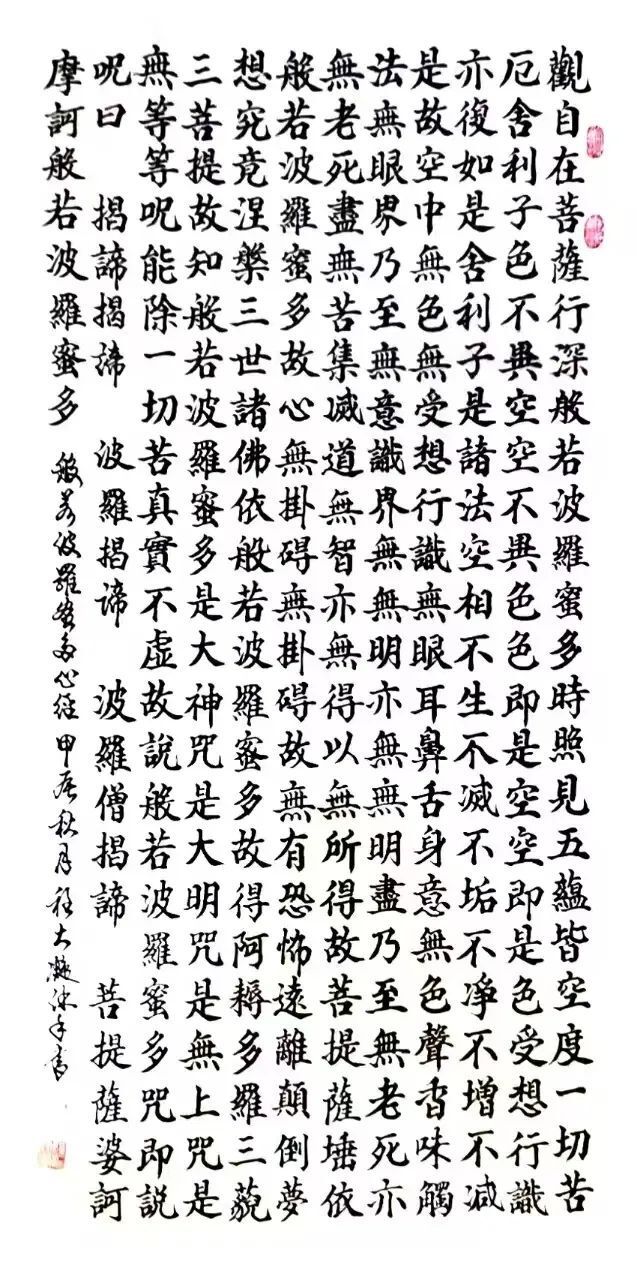 觀自在菩薩行深般若波羅蜜多時照見五蘊皆空度一切苦
厄舍利子色不異空空不異色色即是空空即是色受想行識
亦復如是舍利子是諸法空相不生不滅不垢不淨不增不減
是故空中無色無受想行識無眼耳鼻舌身意無色聲香味觸
法無眼界乃至無意識界無無明亦無無明盡乃至無老死亦
無老死盡無苦集滅道無智亦無得以無所得故菩提薩埵依
般若波羅蜜多故心無掛碍無掛碍故無有恐怖遠離顛倒夢
想究竟涅槃三世諸佛依般若波羅蜜多故得阿耨多羅三藐
三菩提故知般若波羅蜜多是大神咒是大明咒是無上咒是
無等等呪能除一切苦真實不虛故說般若波羅蜜多咒即說
呪曰 揭諦揭諦 波羅揭諦 波羅僧揭諦 菩提薩婆訶
摩訶般若波羅蜜多
般若波羅蜜多心經甲辰秋月大沐手書